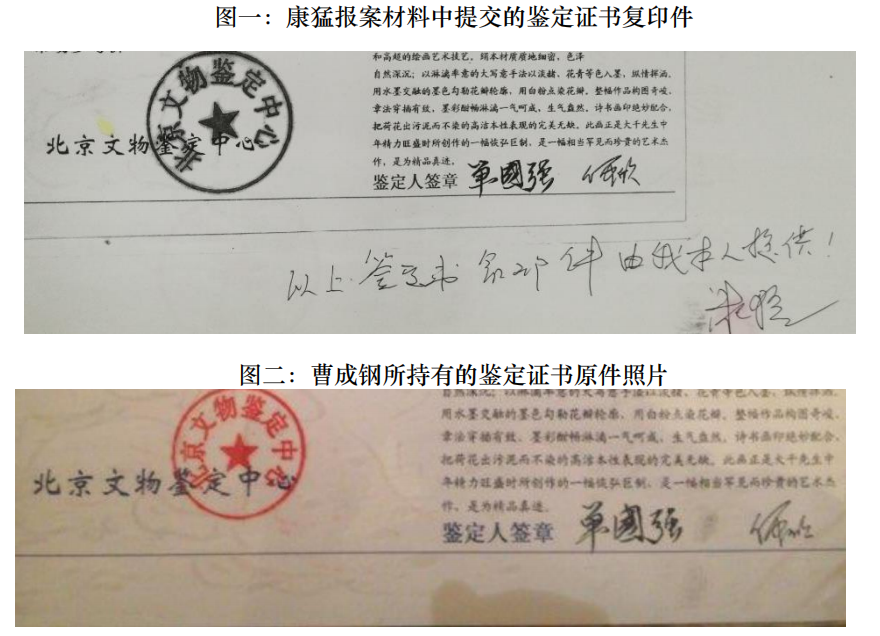 图一：康猛报案材料中提交的鉴定证书复印件
和高超的绘画艺术技艺，绢本材质质地细密，色泽
自然深沉；以淋漓率意的大写意手法以淡赭、花青等色入墨，纵情挥洒，
用水墨交融的墨色勾勒花瓣轮廓，用白粉点染花瓣，整幅作品构图奇峻，
章法穿插有致，墨彩酣畅淋漓一气呵成，生气盎然，诗书画印绝妙配合，
把荷花出污泥而不染的高洁本性表现的完美无缺。此画正是大千先生中
年精力旺盛时所创作的一幅恢弘巨制，是一幅相当罕见而珍贵的艺术杰
作，是为精品真迹。
北京文物鉴定中心
北京文物鉴定中心
鉴定人签章 单國强
以上鉴定书复印件由我本人提供！
图二：曹成钢所持有的鉴定证书原件照片
自然深沉；以淋漓率意的大写意手法以淡赭、花青等色入墨，纵情挥洒，
用水墨交融的墨色勾勒花瓣轮廓，用白粉点染花瓣，整幅作品构图奇峻，
章法穿插有致，墨彩酣畅淋漓一气呵成，生气盎然，诗书画印绝妙配合，
把荷花出污泥而不染的高洁本性表现的完美无缺。此画正是大千先生中
年精力旺盛时所创作的一幅恢弘巨制，是一幅相当罕见而珍贵的艺术杰
作，是为精品真迹。
北京文物鉴定中心
北京文物鉴定中心
鉴定人签章 单國强